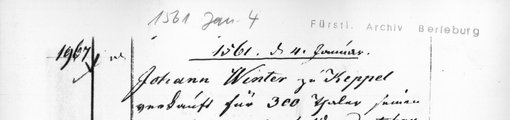 1561 Jan. 4
Fürstl. Archiv Berleburg
1967
1561. d. 4. Januar.
Johann Winter zu Keppel
verkauft für 300 Thaler seinen